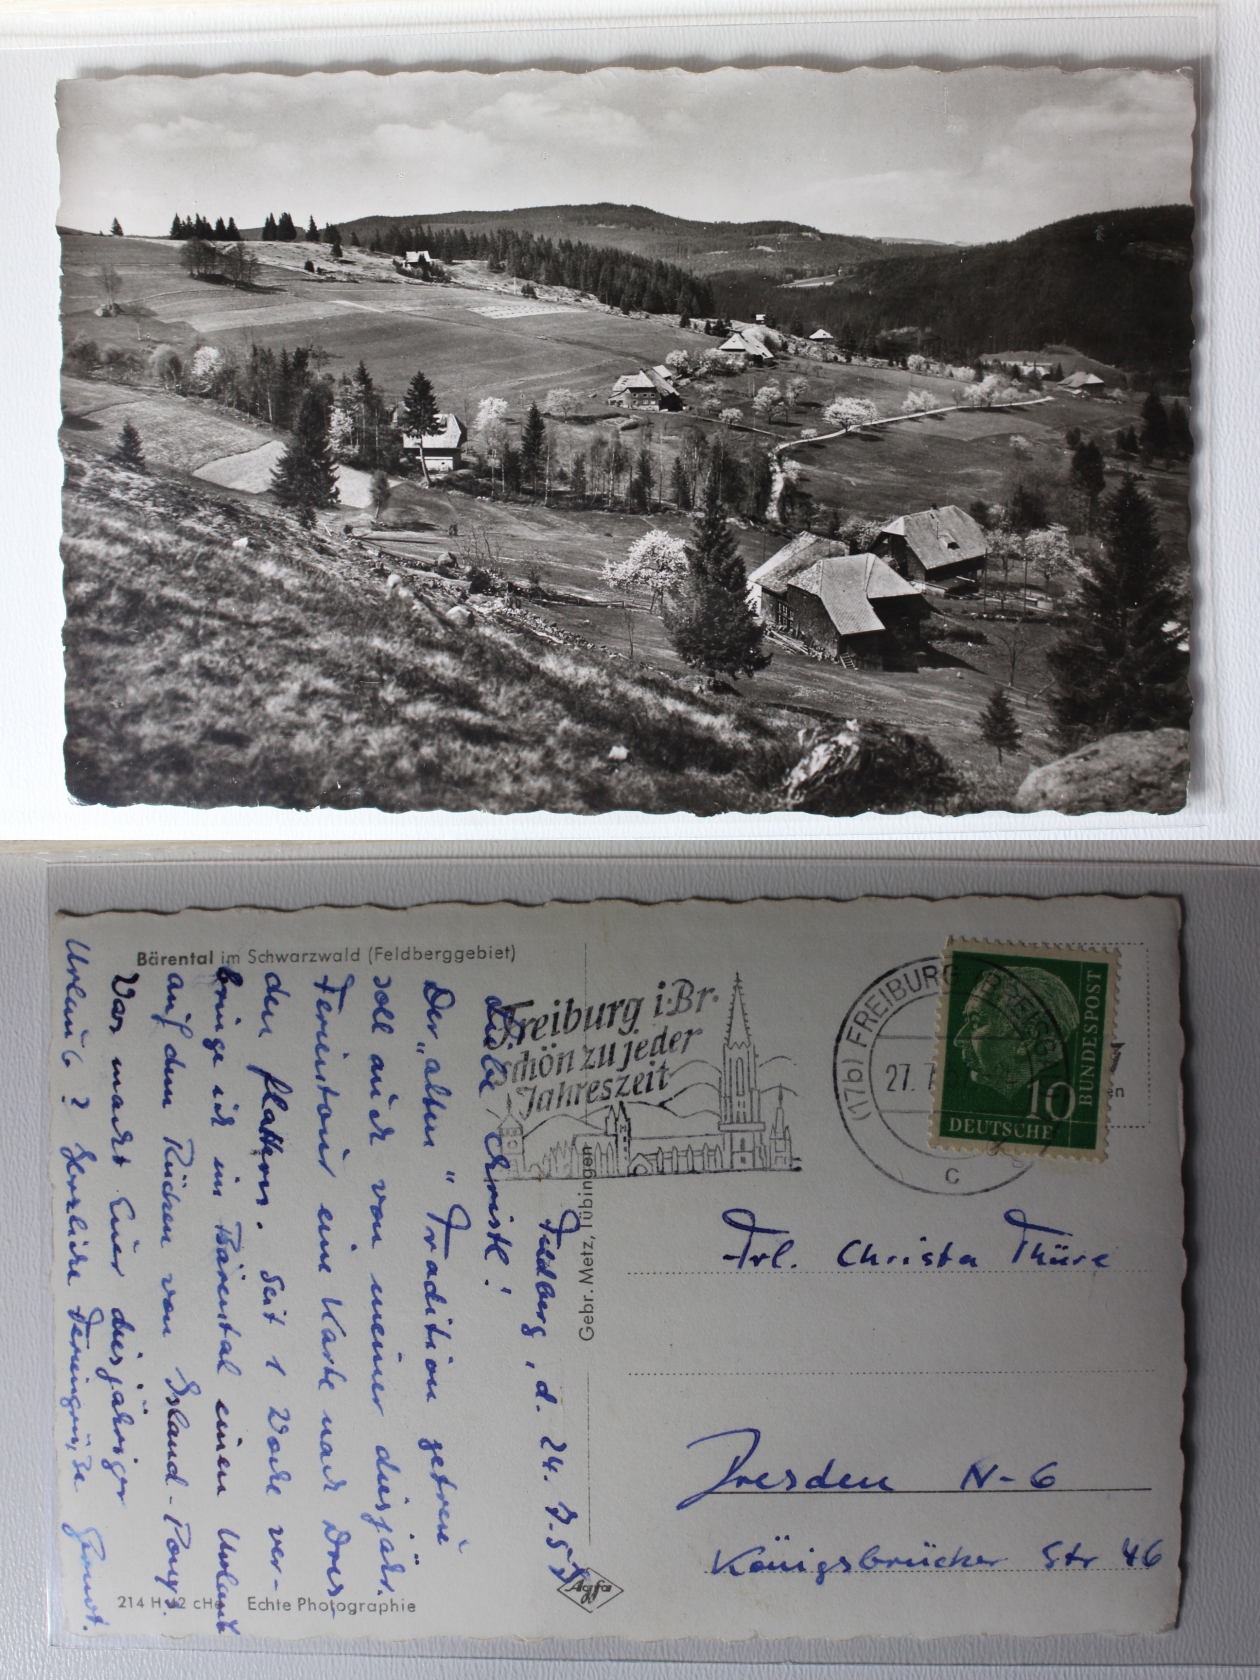 Bärental im Schwarzwald (Feldberggebiet)
Freiburg i. Br.
schön zu jeder
Jahreszeit
(17b) FREIBURG (BREISGAU)
27. 7
c
10
DEUTSCHE
BUNDESPOST
Feldberg, d. 24. 7. 5
Liebe Christl!
Der "alten" Tradition getreu
soll auch von meiner diesjähr.
Ferientour eine Karte nach Dres-
den flattern. Seit 1 Woche ver-
bringe ich im Bärental einen Urlaub
auf dem Rücken von Island-Ponys.
Was macht Euer diesjähriger
Urlaub? Herzliche Feriengrüße
Frl. Christa Thüre
Dresden N-6
Königsbrücker Str 46
Gebr. Metz, Tübingen
Agfa
214 H 42 cHe Echte Photographie